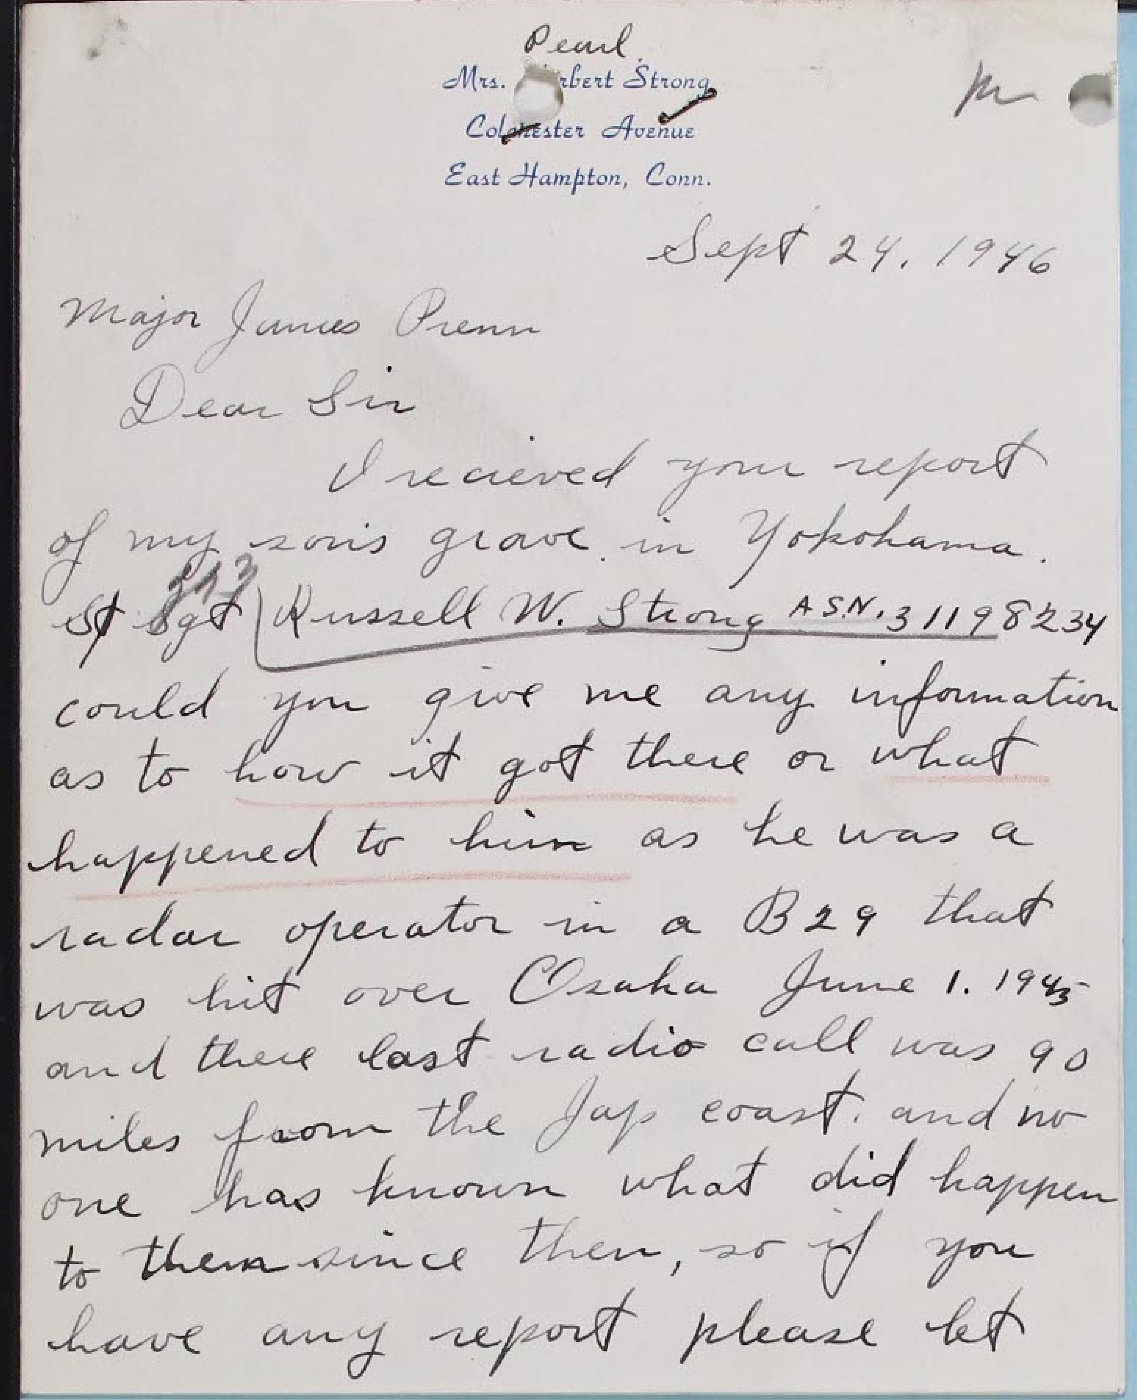 Pearl
Mrs. Herbert Strong
Colchester Avenue
East Hampton, Conn.
Sept 24, 1946
Major James Prenn
Dear Sir
I recieved your report
of my son's grave in Yokohama.
293
St Sgt Russell W. Strong ASN. 31198234
could you give me any information
as to how it got there or what
happened to him as he was a
radar operator in a B29 that
was hit over Osaka June 1. 1945
and there last radio call was 90
miles from the Jap coast. and no
one has known what did happen
to them since then, so if you
have any report please let